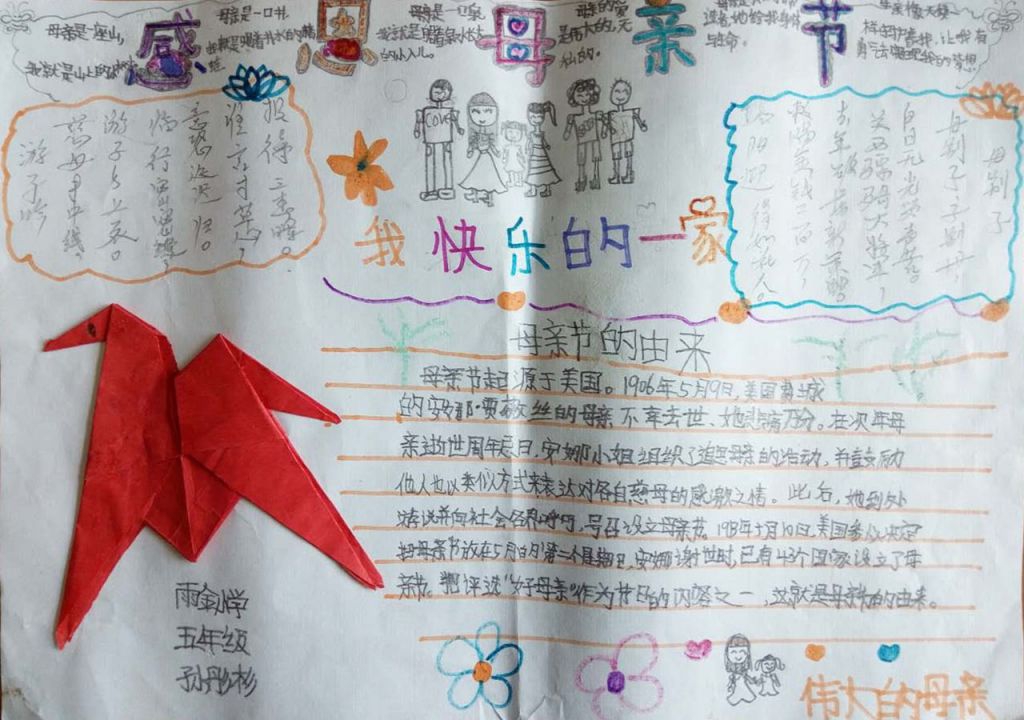 感恩母亲节
母亲是一座山，
母亲是一口井，
我快乐的一家
游子吟
慈母手中线，
游子身上衣。
临行密密缝，
意恐迟迟归。
谁言寸草心，
报得三春晖。
母别子
母别子，子别母，
白日无光哭声苦。
关西骠骑大将军，
去年破虏新策勋。
敕赐金钱二百万，
洛阳迎得如花人。
母亲节的由来
母亲节起源于美国。1906年5月9日，美国费城
的安娜·贾薇丝的母亲不幸去世、她悲痛万分。在次年母
亲逝世周年忌日，安娜小姐组织了追思母亲的活动，并鼓励
他人也以类似方式来表达对各自慈母的感激之情。此后，她到处
游说并向社会各界呼吁，号召设立母亲节。1913年5月10日，美国参议决定
把母亲节放在5月的第二个星期日，安娜谢世时，已有43个国家设立了母
亲节。把评选“好母亲”作为节日的内容之一，这就是母亲节的由来。
雨金小学
五年级
孙彤杉
伟大的母亲